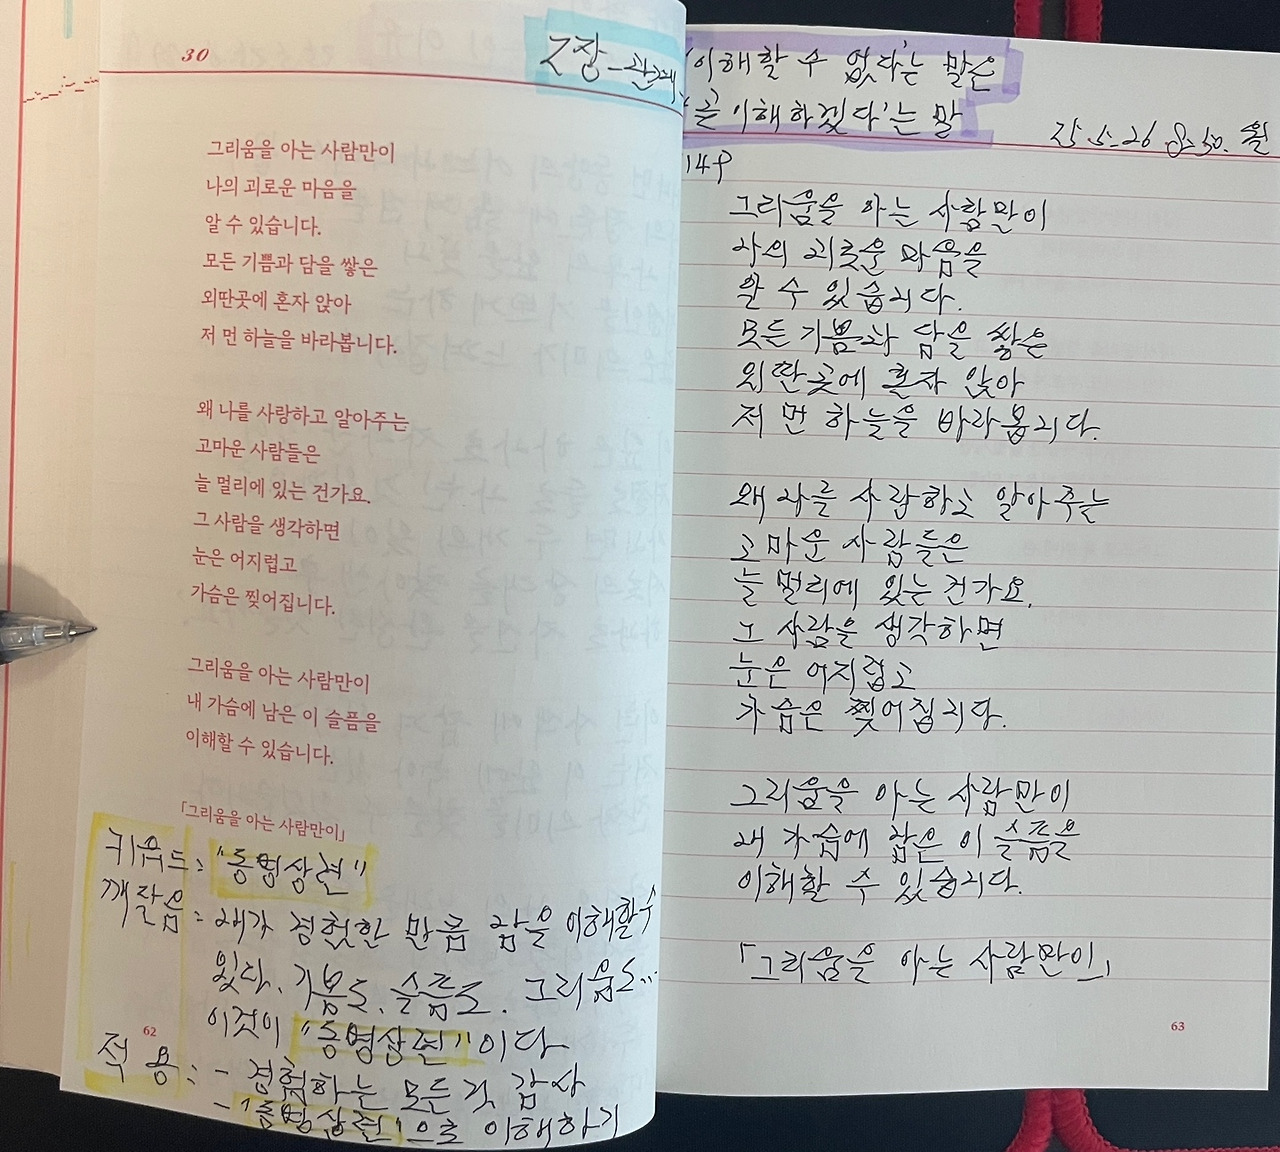 30
그리움을 아는 사람만이
나의 괴로운 마음을
알 수 있습니다.
모든 기쁨과 담을 쌓은
외딴곳에 혼자 앉아
저 먼 하늘을 바라봅니다.
왜 나를 사랑하고 알아주는
고마운 사람들은
늘 멀리에 있는 건가요.
그 사람을 생각하면
눈은 어지럽고
가슴은 찢어집니다.
그리움을 아는 사람만이
내 가슴에 남은 이 슬픔을
이해할 수 있습니다.
「그리움을 아는 사람만이」
키워드 : "동병상련"
깨달음 : 내가 경험한 만큼 남을 이해할 수
있다. 기쁨도, 슬픔도. 그리움도...
이것이 "동병상련"이다
적용 : - 경험하는 모든 것 감사
- "동병상련"으로 이해하기
62
2장-관계.
'이해할 수 없다'는 말은
이해하겠다'는 말
25.5.26 8:50. 월
149
그리움을 아는 사람만이
나의 괴로운 마음을
알 수 있습니다.
모든 기쁨과 담을 쌓은
외딴곳에 혼자 앉아
저 먼 하늘을 바라봅니다.
왜 나를 사랑하고 알아주는
고마운 사람들은
늘 멀리에 있는 건가요.
그 사람을 생각하면
눈은 어지럽고
가슴은 찢어집니다.
그리움을 아는 사람만이
내 가슴에 남은 이 슬픔을
이해할 수 있습니다.
「그리움을 아는 사람만이」
63